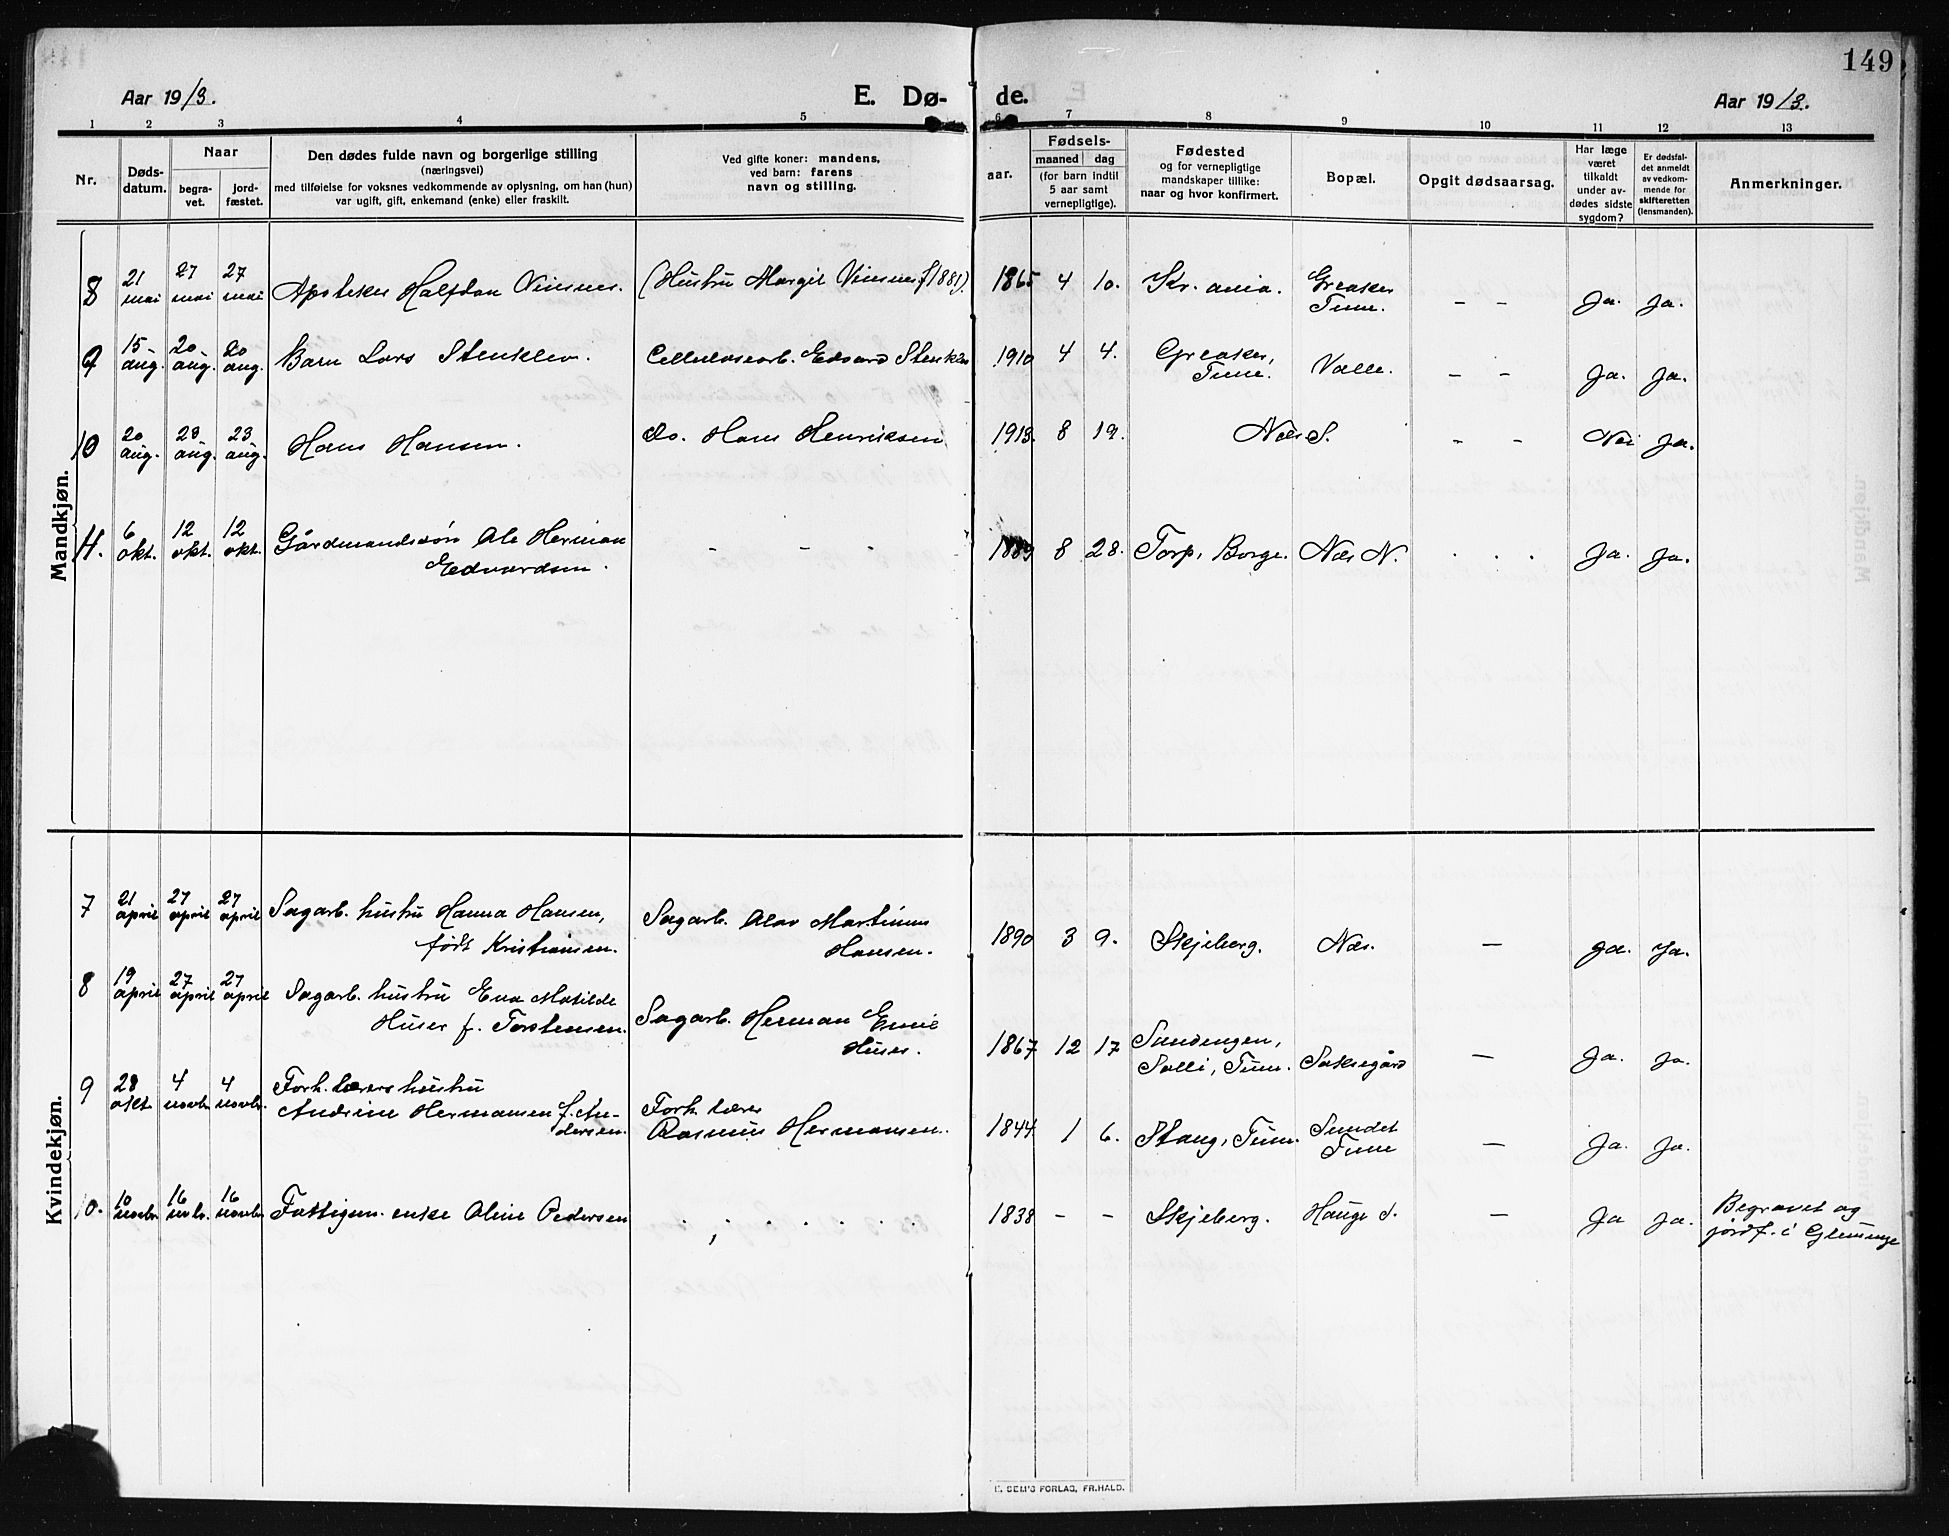 149
Aar 1913.
E. Dø-
de.
Aar 1913.
1 2 3 4 5 6 7 8 9 10 11 12 13
Nr.
Døds-
datum.
Naar
begra-
vet.
jord-
fæstet.
Den dødes fulde navn og borgerlige stilling
(næringsvei)
med tilføielse for voksnes vedkommende av oplysning, om han (hun)
var ugift, gift, enkemand (enke) eller fraskilt.
Ved gifte koner: mandens,
ved barn: farens
navn og stilling.
aar.
Fødsels-
maaned dag
(for barn indtil
5 aar samt
vernepligtige).
Fødested
og for vernepligtige
mandskaper tillike:
naar og hvor konfirmert.
Bopæl.
Opgit dødsaarsag.
Har læge
været
tilkaldt
under av-
dødes sidste
sygdom?
Er dødsfal-
det anmeldt
av vedkom-
mende for
skifteretten
(lensmanden).
Anmerkninger.
Mandkjøn.
8 21 mai 27 mai 27 mai Apoteker Halfdan Vinsnes. (Hustru Margit Vinsnes f 1881). 1865 4 10. Kr.ania. Greaker Tune. – – Ja. Ja.
9 15 aug. 20 aug. 20 aug. Barn Lars Stenklev. Cellulosearb. Edvard Stenklev 1910 4 4. Greaker, Tune. Valle. – – Ja. Ja.
10 20 aug. 23 aug. 23 aug. Hans Hansen. do. Hans Henriksen 1913. 8 19. Næs S. - - Nei Ja.
11. 6 okt. 12 okt. 12 okt. Gårdmandssøn Ole Herman - - - 1889 8 28. Torp, Borge. Næs N. . . . Ja. Ja.
Edvardsen.
Kvindekjøn.
7 21 april 27 april 27 april Sagarb. hustru Hanna Hansen, Sagarb. Olav Martinius
født Kristiansen. Hansen. 1890 3 9. Skjeberg. Næs. — Ja. Ja.
8 19 april 27 april 27 april Sagarb. hustru Eva Matilde
Huser f. Torstensen. Sagarb. Herman Emil
Huser. 1867 12 17 Sandengen,
Solli, Tune. Saksegård — Ja. Ja.
9 28 okt. 4 novbr 4 novbr. Forh. lærers hustru
Andrine Hermansen f. An-
dersen. Forh. lærer
Rasmus Hermansen. 1844 1 6. Stang, Tune. Sundet
Tune — Ja. Ja.
10. 10 novbr 16 novbr. 16 novbr Fattigun. enke Oline Pedersen . , . . . . . 1838 - - Skjeberg. Hauge S. — Ja Ja. Begravet og
jordf. i Glemminge
E. SEM'S FORLAG, FR.HALD.